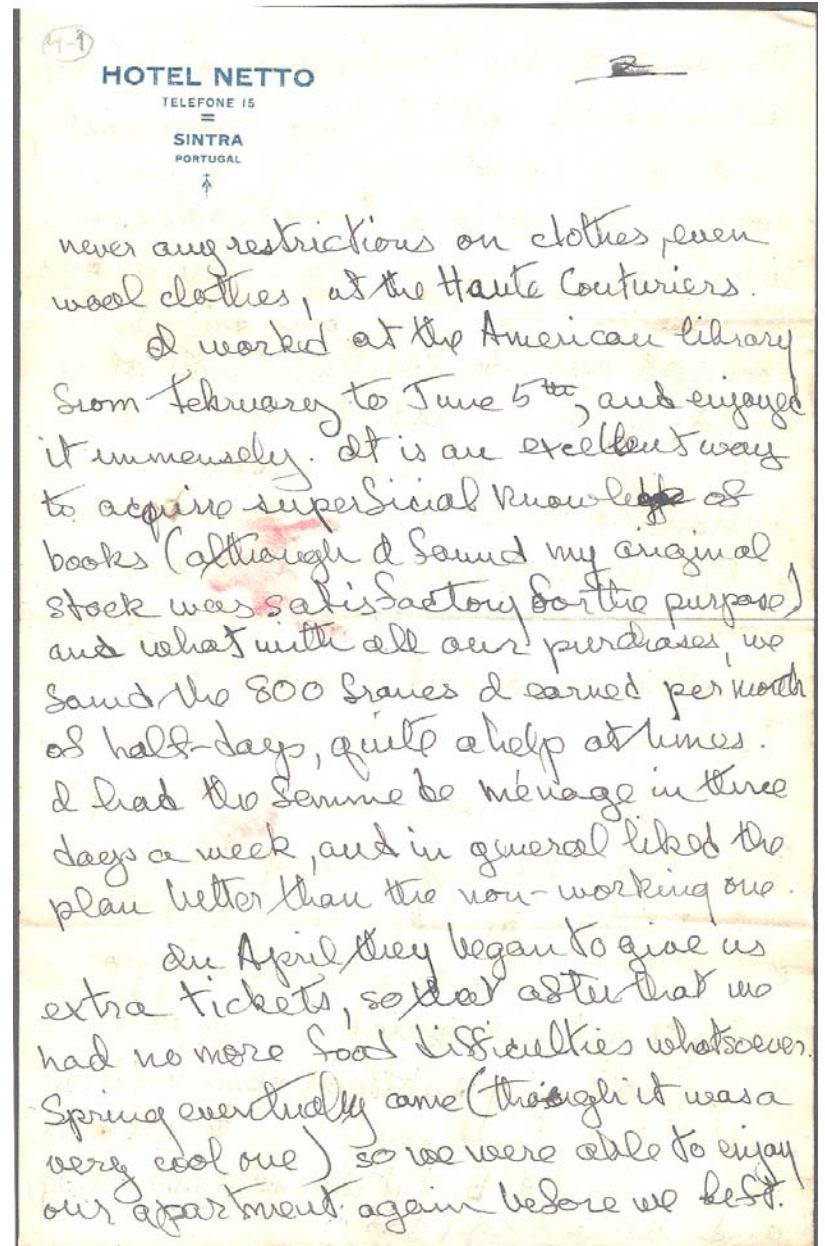 4-1
HOTEL NETTO
TELEFONE 15
SINTRA
PORTUGAL
never any restrictions on clothes, even
wool clothes, at the Haute Couturiers.
I worked at the American library
from February to June 5th, and enjoyed
it immensely. It is an excellent way
to acquire superficial knowledge of
books (although I found my original
stock was satisfactory for the purpose)
and what with all our purchases, we
found the 800 francs I earned per month
of half-days, quite a help at times.
I had the femme de ménage in three
days a week, and in general liked the
plan better than the non-working one.
In April they began to give us
extra tickets, so that after that we
had no more food difficulties whatsoever.
Spring eventually came (though it was a
very cool one) so we were able to enjoy
our apartment again before we left.